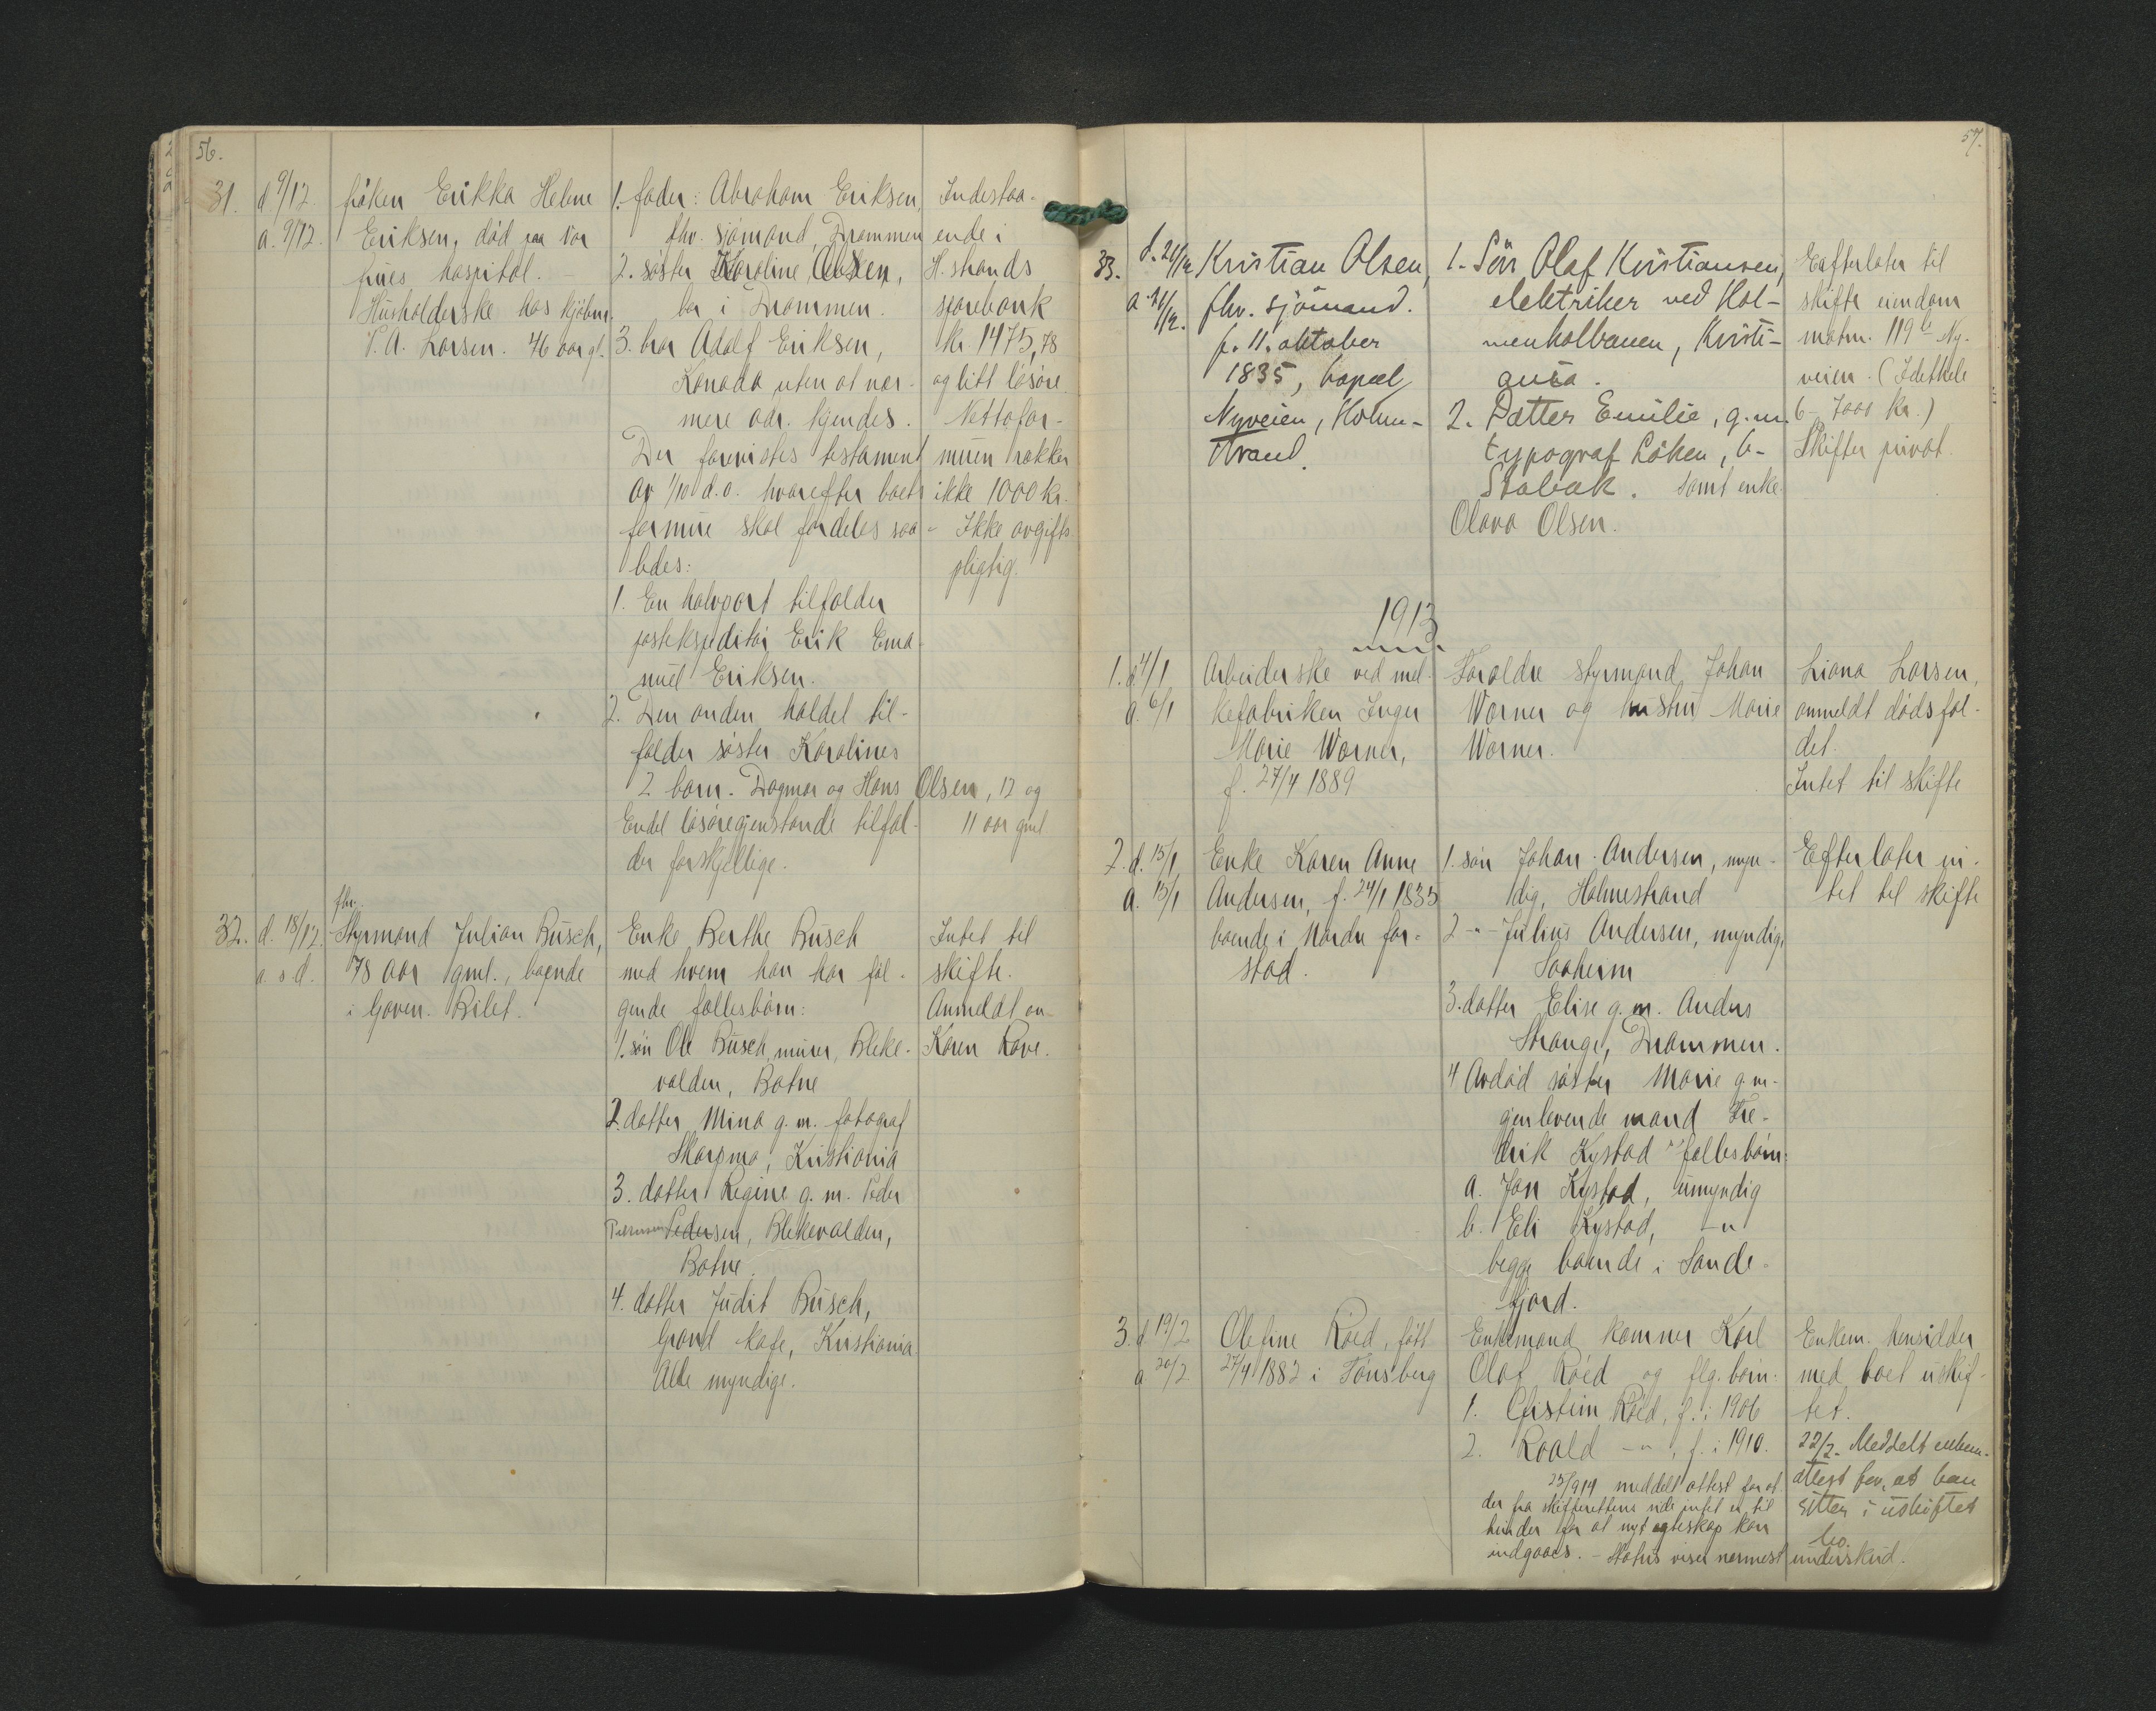 56.
31. d 9/12 fröken Erikka Helene
a. 9/12. Eriksen, död paa Vor
frues hospital. –
Husholderske hos kjöbm.
V. A. Larsen. 46 aar gl.
1. fader: Abraham Eriksen,
fhv. sjömand, Drammen
2. söster Karoline Olsen,
bor i Drammen.
3. bror Adolf Eriksen,
Kanada uten at nær-
mere adr. kjendes.
Der forevistes testament
av 1/10 d.a. hvorefter boets
formue skal fordeles saa-
ledes:
1. En halvpart tilfalder
postekspeditör Erik Ema-
nuel Eriksen.
2. Den anden haldel til-
falder söster Karolines
2 barn. Dagmar og Hans Olsen, 12 og
Endel lösöregjenstande tilfal- 11 aar gml
der forskjellige.
Indestaa-
ende i
H.strands
sparebank
kr. 1475,78
og litt lösöre.
Nettofor-
muen rækker
ikke 1000 kr.
– Ikke avgifts
pligtig.
fhv.
32. d. 18/12. Styrmand Julian Busch,
a. s. d. 78 aar gml., boende
i Gaven. Rilet.
Enke Berthe Busch
med hvem han har föl-
gende fællesbörn:
1. sön Ole Busch, murer, Bleke-
valden, Botne
2. datter Mina g. m. fotograf
Skarpmo, Kristiania
3. datter Regine g. m. Peder
Pedersen, Blekevalden,
Botne.
4. datter Judit Busch,
Grand kafe, Kristiania.
Alle myndige.
Intet til
skifte.
Anmeldt av
Karen Rove.
57.
33. d. 21/12 Kristian Olsen,
a 21/12. fhv. sjömand.
f. 11. oktober
1835, bopæl
Nyveien, Holme-
strand.
1. Sön Olaf Kristiansen,
elektriker ved Hol-
menkolbanen, Kristi-
ania.
2. Datter Emilie, g. m.
typograf Löken, b-
Stabæk. samt enke
Olava Olsen.
Eefterlater til
skifte eiendom
matrn. 119 b Ny-
veien. (Idethele
6 – 7000 kr.)
Skifter privat.
1913
1. d 4/1 Arbeiderske ved mel-
a. 6/1 kefabriken Inger
Marie Wærner,
f. 27/4 1889
Foræ​ldre styrmand Johan
Wærner og hustru Marie
Wærner.
Liana Larsen,
anmeldt dödsfal-
det.
Intet til skifte
2. d. 15/1 Enke Karen Anne
a. 15/1 Andersen, f. 24/1 1835
boende i Nordre for-
stad.
1. sön Johan Andersen, myn-
dig, Holmestrand
2 –"– Julius Andersen, myndig,
Saaheim
3. datter Elise g. m. Anders
Strange, Drammen.
4 Avdöd söster Marie g. m.
gjenlevende mand Fre-
drik Kystad fællesbörn:
a. Jan Kystad, umyndig
b. Eli Kystad, –"
begge boende i Sande-
fjord.
Efterlater in-
tet til skifte
3. d 19/2 Olefine Röed, född
a 20/2 27/4 1882 i Tönsberg
Enkemand kemner Karl
Olaf Röed og flg. börn.
1. Öistein Röed, f. i 1906
2. Roald –"–, f. i 1910.
25/9 14 meddelt attest for at
der fra skifterettens side intet er til
hinder for at nyt egteskap kan
indgaaes. – Status viser nærmest underskud.
Enkem. hensidder
med boet uskif-
tet.
22/2. Meddelt enkem.
attest for, at han
sitter i uskiftet
bo.